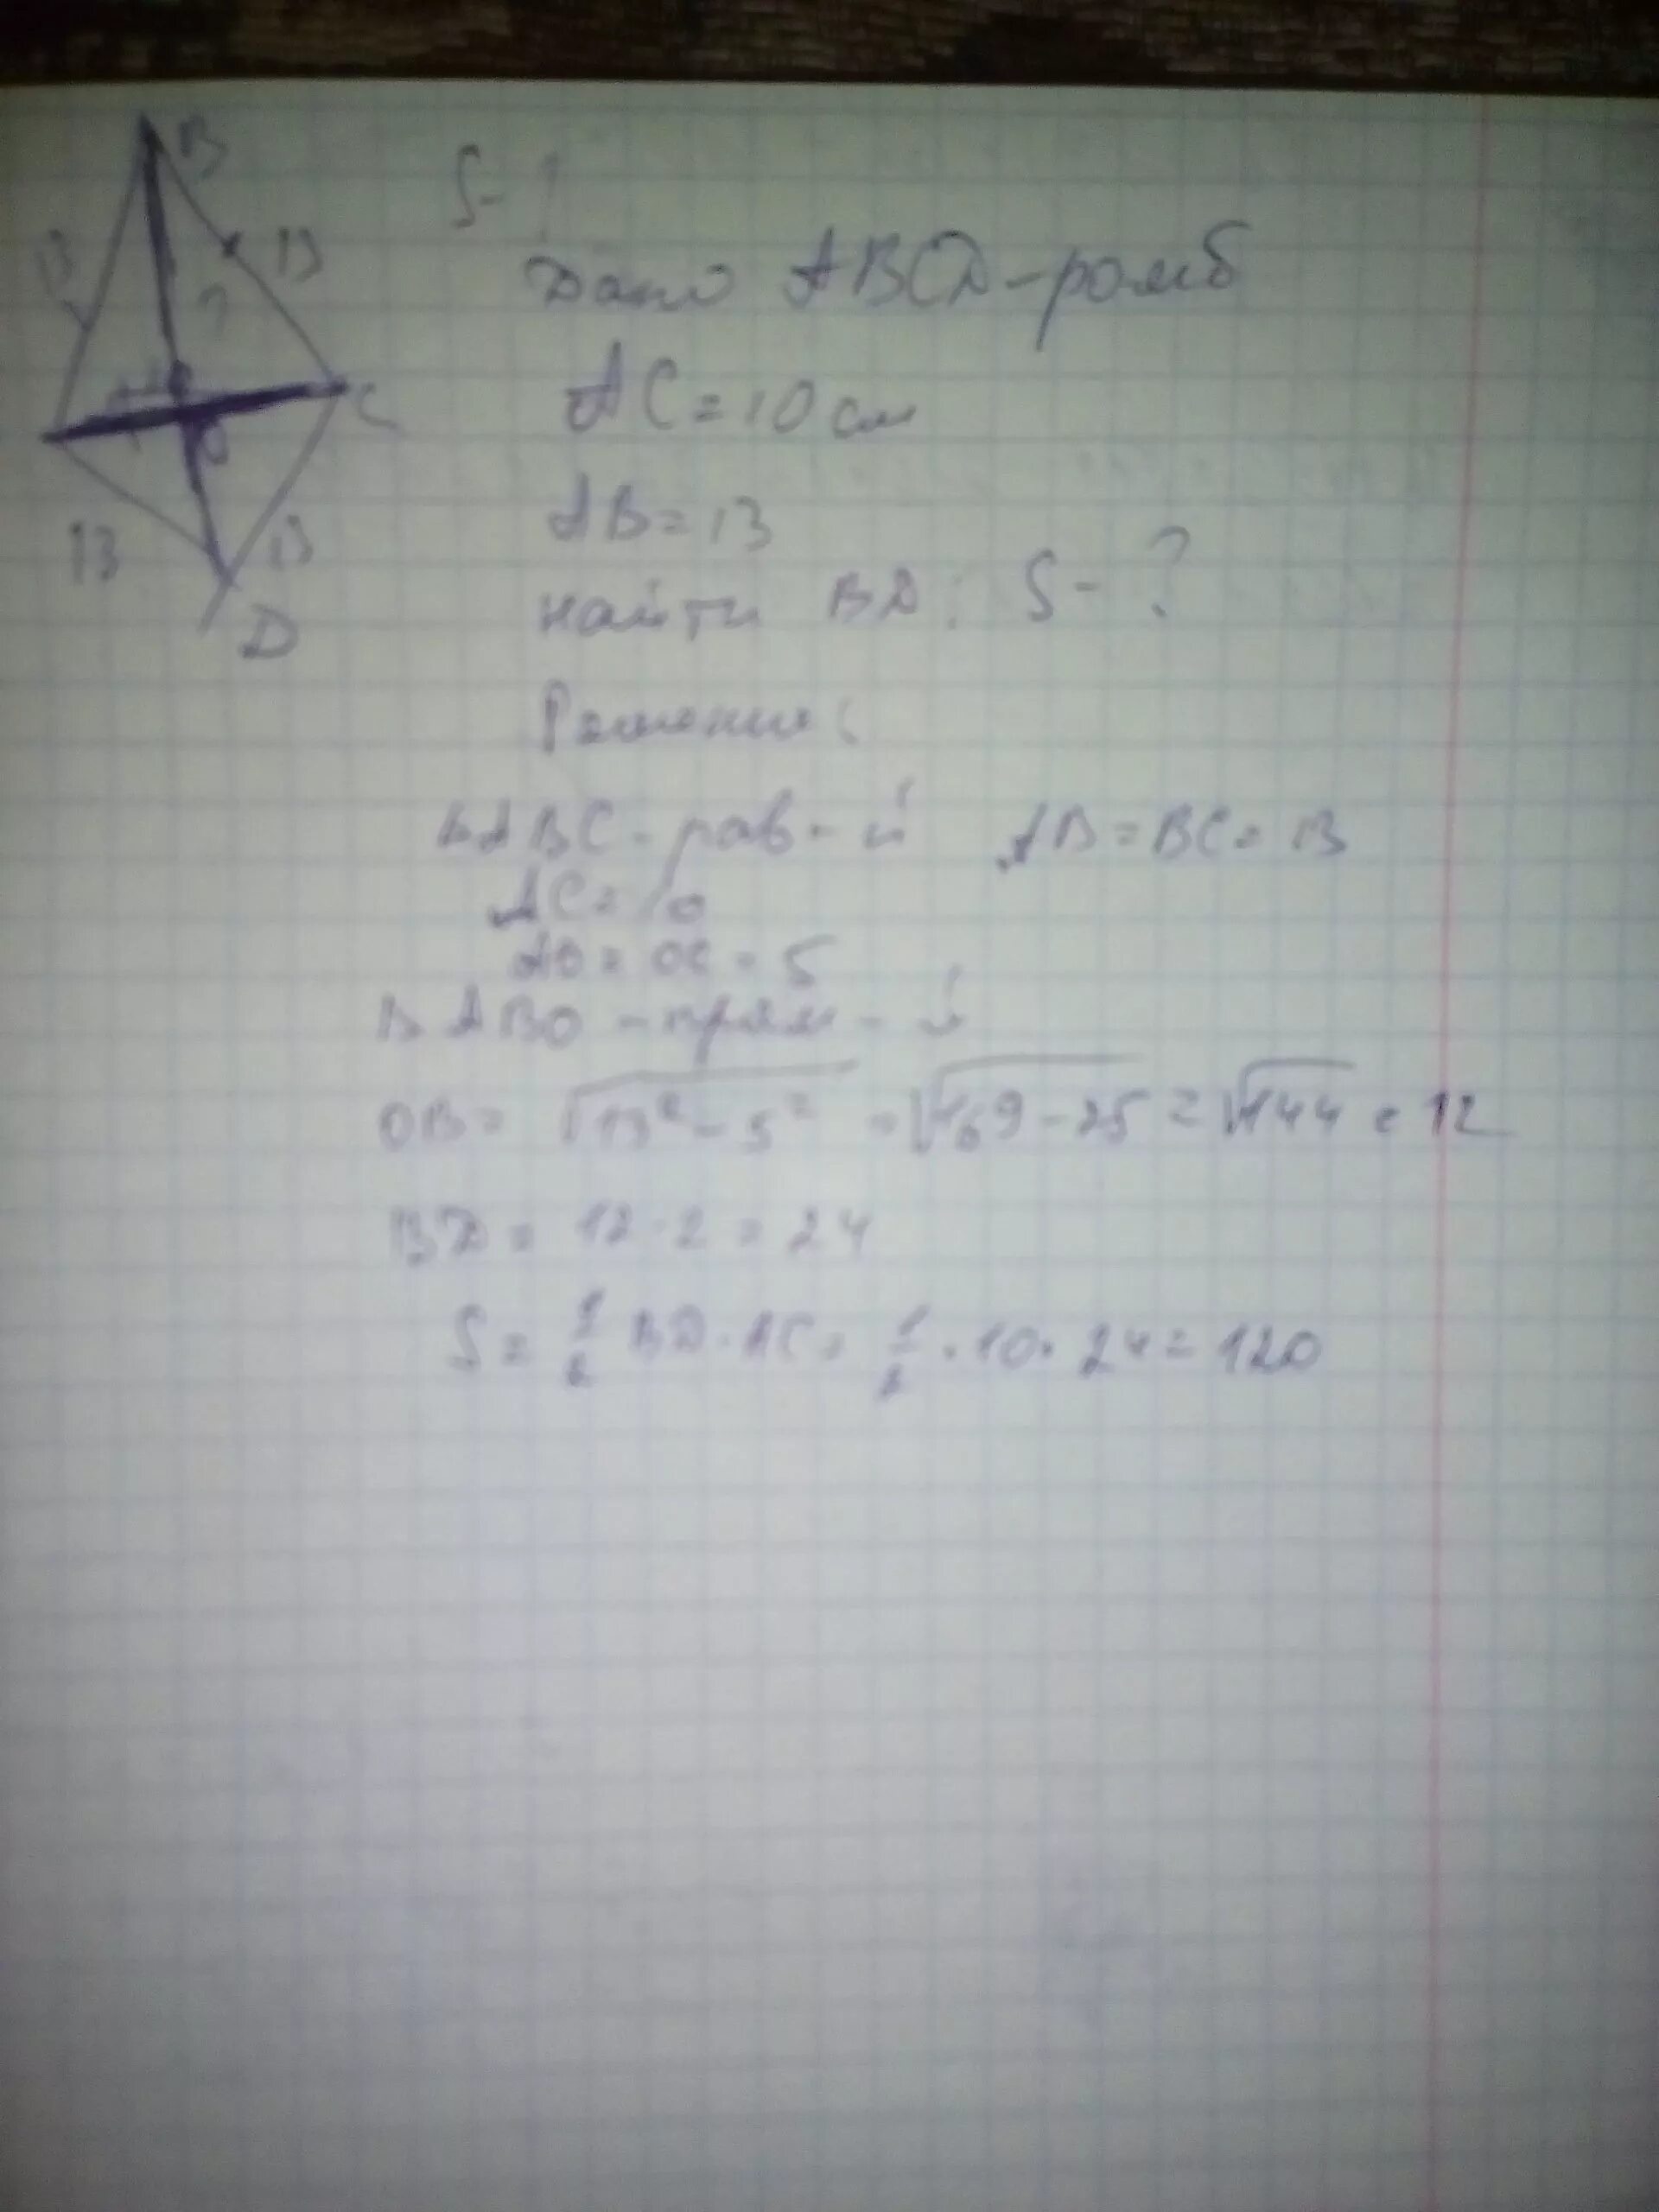 B
S-?
13
13
?
Дано ABCD-ромб
C
AC=10см
O
AB=13
13
13
найти BD; S-?
D
Решение:
ΔABC-рав-й AB=BC=13
AC=10
AO=OC=5
ABO-прям-й
OB= √13²-5² =√169-25=√144=12
BD=12·2=24
S=1/2 BD·AC=1/2·10·24=120